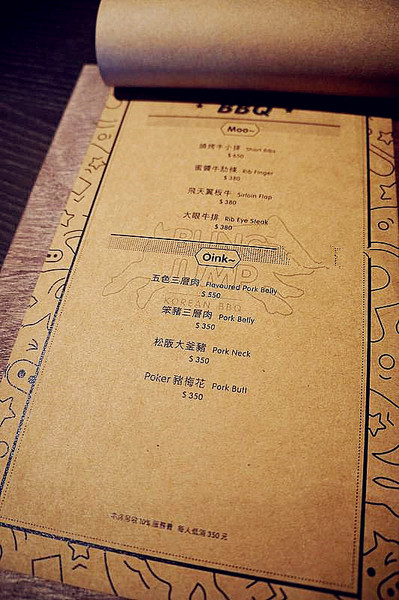 BBQ
Moo~
燒烤牛小排 Short Ribs
$ 450
蜜醬牛肋條 Rib Finger
$ 380
飛天翼板牛 Sirloin Flap
$ 380
大眼牛排 Rib Eye Steak
$ 380
Oink~
KOREAN BBQ
五色三層肉 Flavoured Pork Belly
$ 550
笨豬三層肉 Pork Belly
$ 350
松阪大釜豬 Pork Neck
$ 350
Poker 豬梅花 Pork Butt
$ 350
本店另收10%服務費 每人低消350元